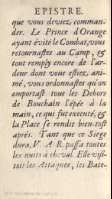 EPISTRE.
que vous deviez, comman-
der. Le Prince d'Orange
ayant évité le Combat, vous
retournastes au Camp, &
tout remply encore de l'ar-
deur dont vous estiez, ani-
mé, vous ordonnastes qu'on
emportast tous les Dehors
de Bouchain l'épée à la
main, ce qui fut executé, &
la Place se rendit bien-tost
aprés. Tant que ce Siege
dura, V. A. R. passa toutes
les nuits à cheval. Elle visi-
toit les Attaques, les Bate-